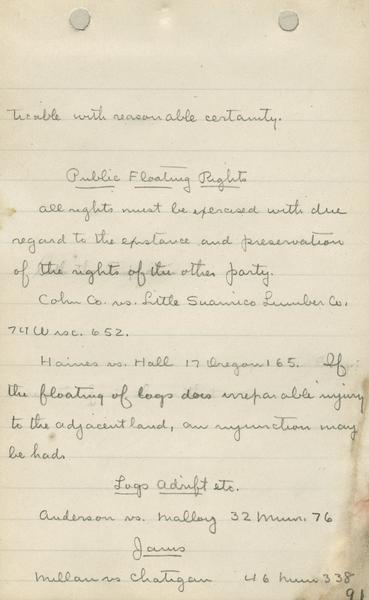 ticable with reasonable certainty.
Public Floating Rights
All rights must be exercised with due
regard to the existance and preservation
of the rights of the other party.
Cohn Co. vs. Little Suamico Lumber Co.
74 Wisc. 652.
Haines vs. Hall 17 Oregon 165. If
the floating of logs does irreparable injury
to the adjacent land, an injunction may
be had.
Logs Adrift etc.
Anderson vs. Malloy 32 Minn. 76
Jams
vs 46 Minn 338
91